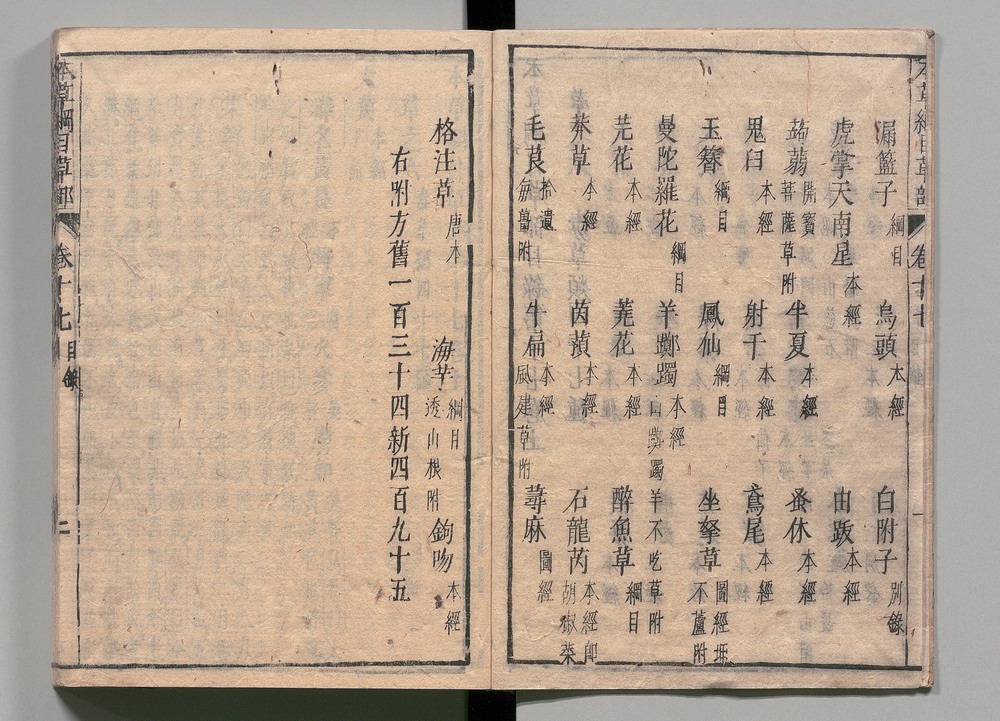 本草綱目草部 卷十七
漏籃子 綱目 烏頭 本經 白附子 別錄
虎掌天南星 本經 由跋 本經
蒟蒻 開寶 菩薩草附 半夏 本經 蚤休 本經
鬼臼 本經 射干 本經 鳶尾 本經
玉簪 綱目 鳳仙 綱目 坐拏草 圖經 押不蘆附
曼陀羅花 綱目 羊躑躅 本經 山躑躅 羊不吃草附
芫花 本經 蕘花 本經 醉魚草 綱目
莽草 本經 茵蕷 本經 石龍芮 本經即胡椒菜
毛茛 拾遺 牛扁 本經 風建草附 蕁麻 圖經
格注草 唐本 海芋 綱目 透山根附 鉤吻 本經
右附方舊一百三十四新四百九十五
本草綱目草部 卷十七目錄 二